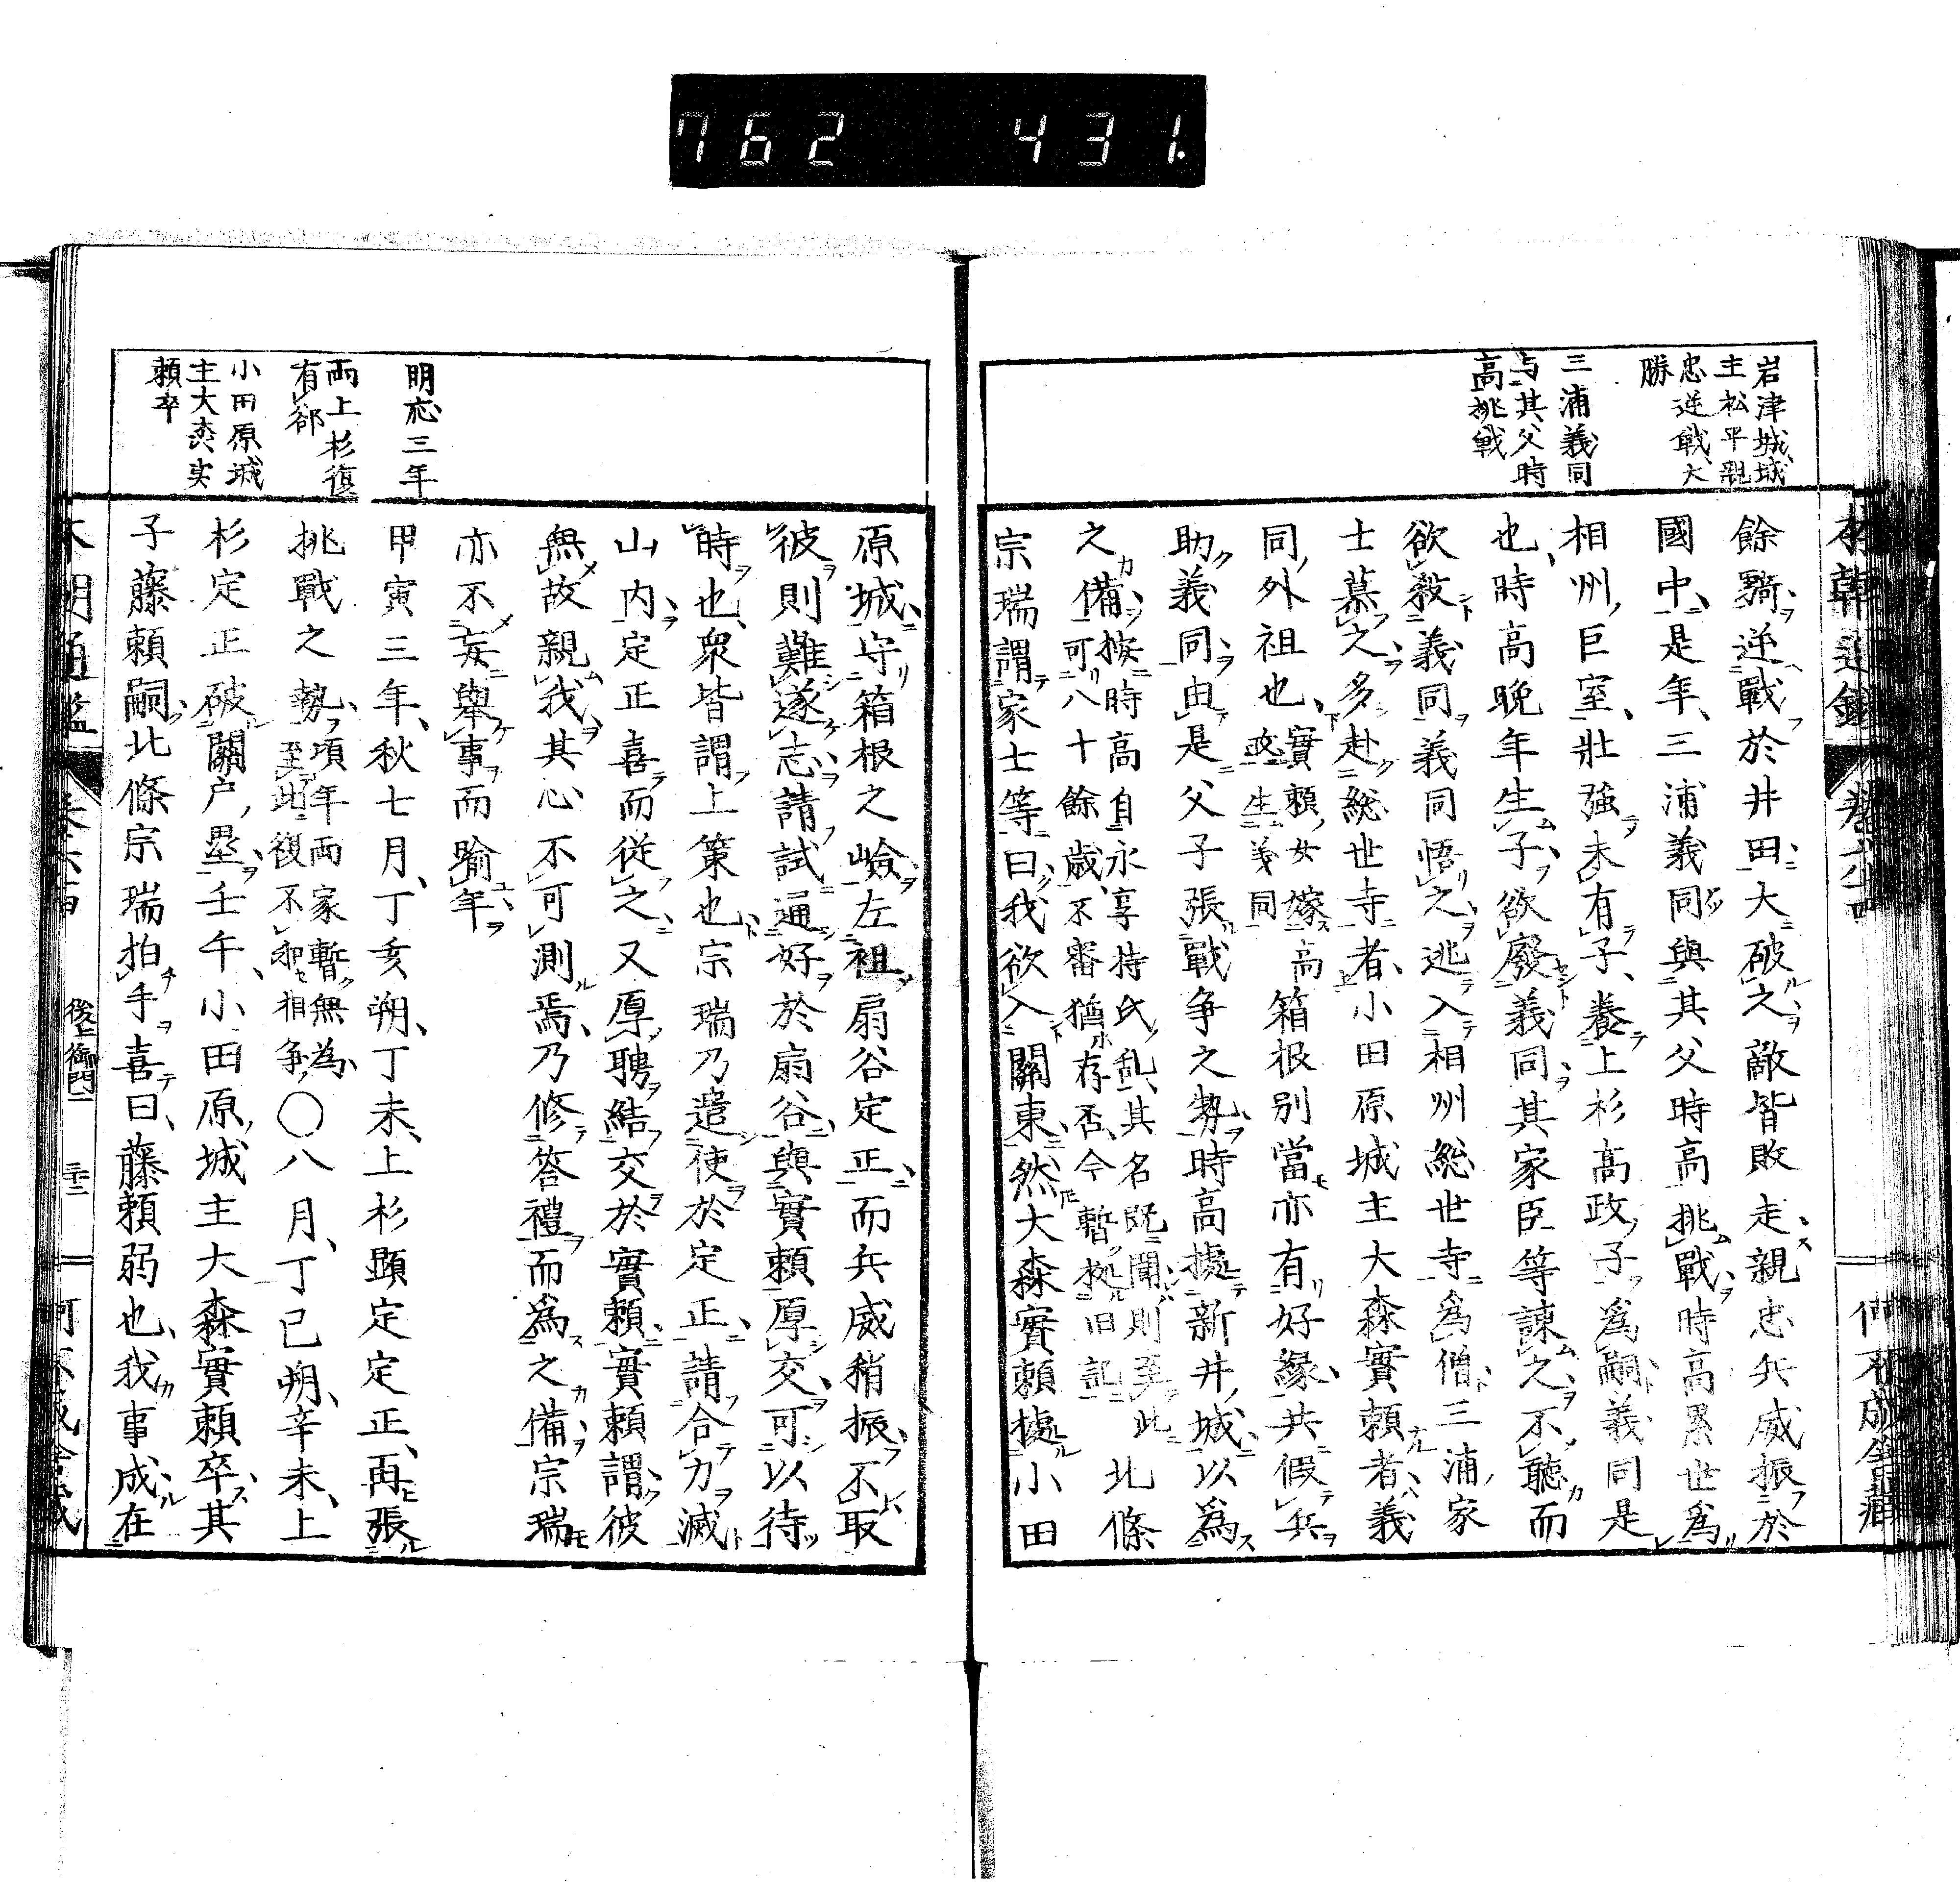 762 431.
岩津城城
主松平親
忠逆戦大
勝
三浦義同
与其父時
高挑戦
餘騎逆戰於井田大破之敵皆敗走親忠兵威振於
國中是年三浦義同與其父時高挑戰時高累世為
相州巨室壯强未有子養上杉高政子爲嗣義同是
也時高晩年生子欲廢義同其家臣等諫之不聽而
欲殺義同義同悟之逃入相州総世寺爲僧三浦家
士慕之多赴総世寺者小田原城主大森實頼者義
同外祖也實頼女嫁高
政生義同箱根別當亦有好緣共假兵
助義同由是父子張戰争之勢時高據新井城以爲
之備按時高自永享持氏乱其名既聞則至此
可八十餘歲不審猶存否今暫拠旧記北條
宗瑞謂家士等曰我欲入關東然大森實頼據小田
原城守箱根之嶮左袒扇谷定正而兵威稍振不取
彼則難遂志請試通好於扇谷與實頼厚交可以待
時也衆皆謂上策也宗瑞乃遣使於定正請合力滅
山內定正喜而從之又厚聘結交於實頼實頼謂彼
無故親我其心不可測焉乃修答禮而爲之備宗瑞
亦不妄舉事而踰年
明応三年
両上杉復
有郤
小田原城
主大森実
頼卒
甲寅三年秋七月丁亥朔丁未上杉顕定定正再張
挑戰之勢項年両家暫無為
至此復不和相争〇八月丁巳朔辛未上
杉定正破關戸壘壬午小田原城主大森實頼卒其
子藤頼嗣北條宗瑞拍手喜曰藤頼弱也我事成在
本朝通鑑
後土御門二
三十二